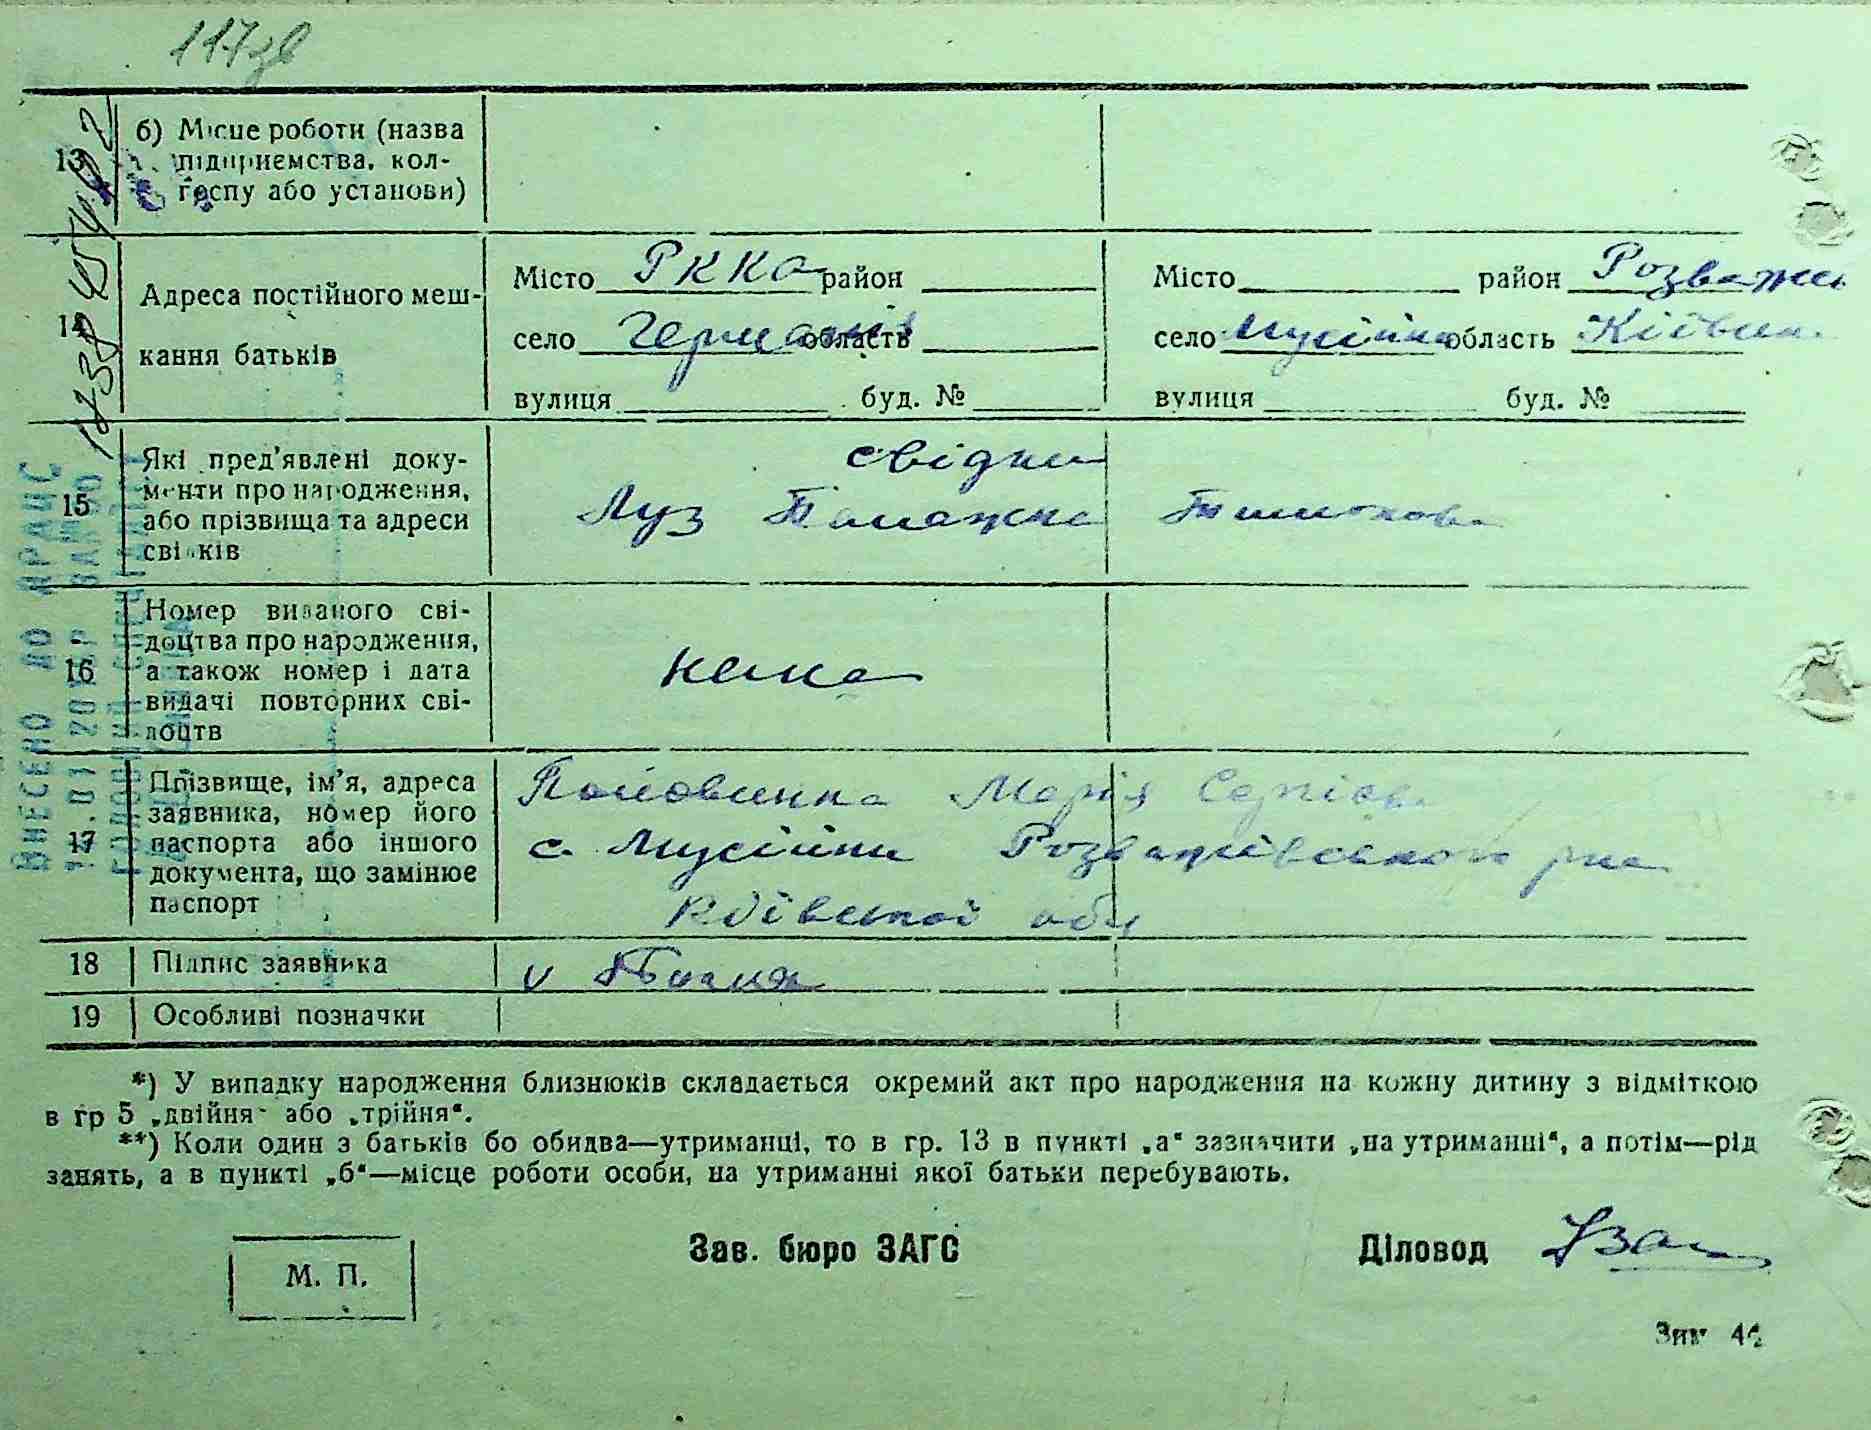 117зв
13
б) Місце роботи (назва
підприємства, кол-
госпу або установи)
14
Адреса постійного меш-
кання батьків
Місто РККА район
село Германія область
вулиця буд. №
Місто район Розваж
село Мусійки область Київськ
вулиця буд. №
15
Які пред'явлені доку-
менти про народження,
або прізвища та адреси
свідків
свідки
Луз
16
Номер виданого сві-
доцтва про народження,
а також номер і дата
видачі повторних сві-
доцтв
нема
17
Прізвище, ім'я, адреса
заявника, номер його
паспорта або іншого
документа, що замінює
паспорт
Половинка Марія
с. Мусійки Розважівського р-на
Київської обл
18
Підпис заявника
19
Особливі позначки
*) У випадку народження близнюків складається окремий акт про народження на кожну дитину з відміткою
в гр 5 „двійня" або „трійня".
**) Коли один з батьків бо обидва—утриманці, то в гр. 13 в пункті „а" зазначити „на утриманні", а потім—рід
занять, а в пункті „б"—місце роботи особи, на утриманні якої батьки перебувають.
М. П.
Зав. бюро ЗАГС
Діловод
ВНЕСЕНО ДО ДРАЦС